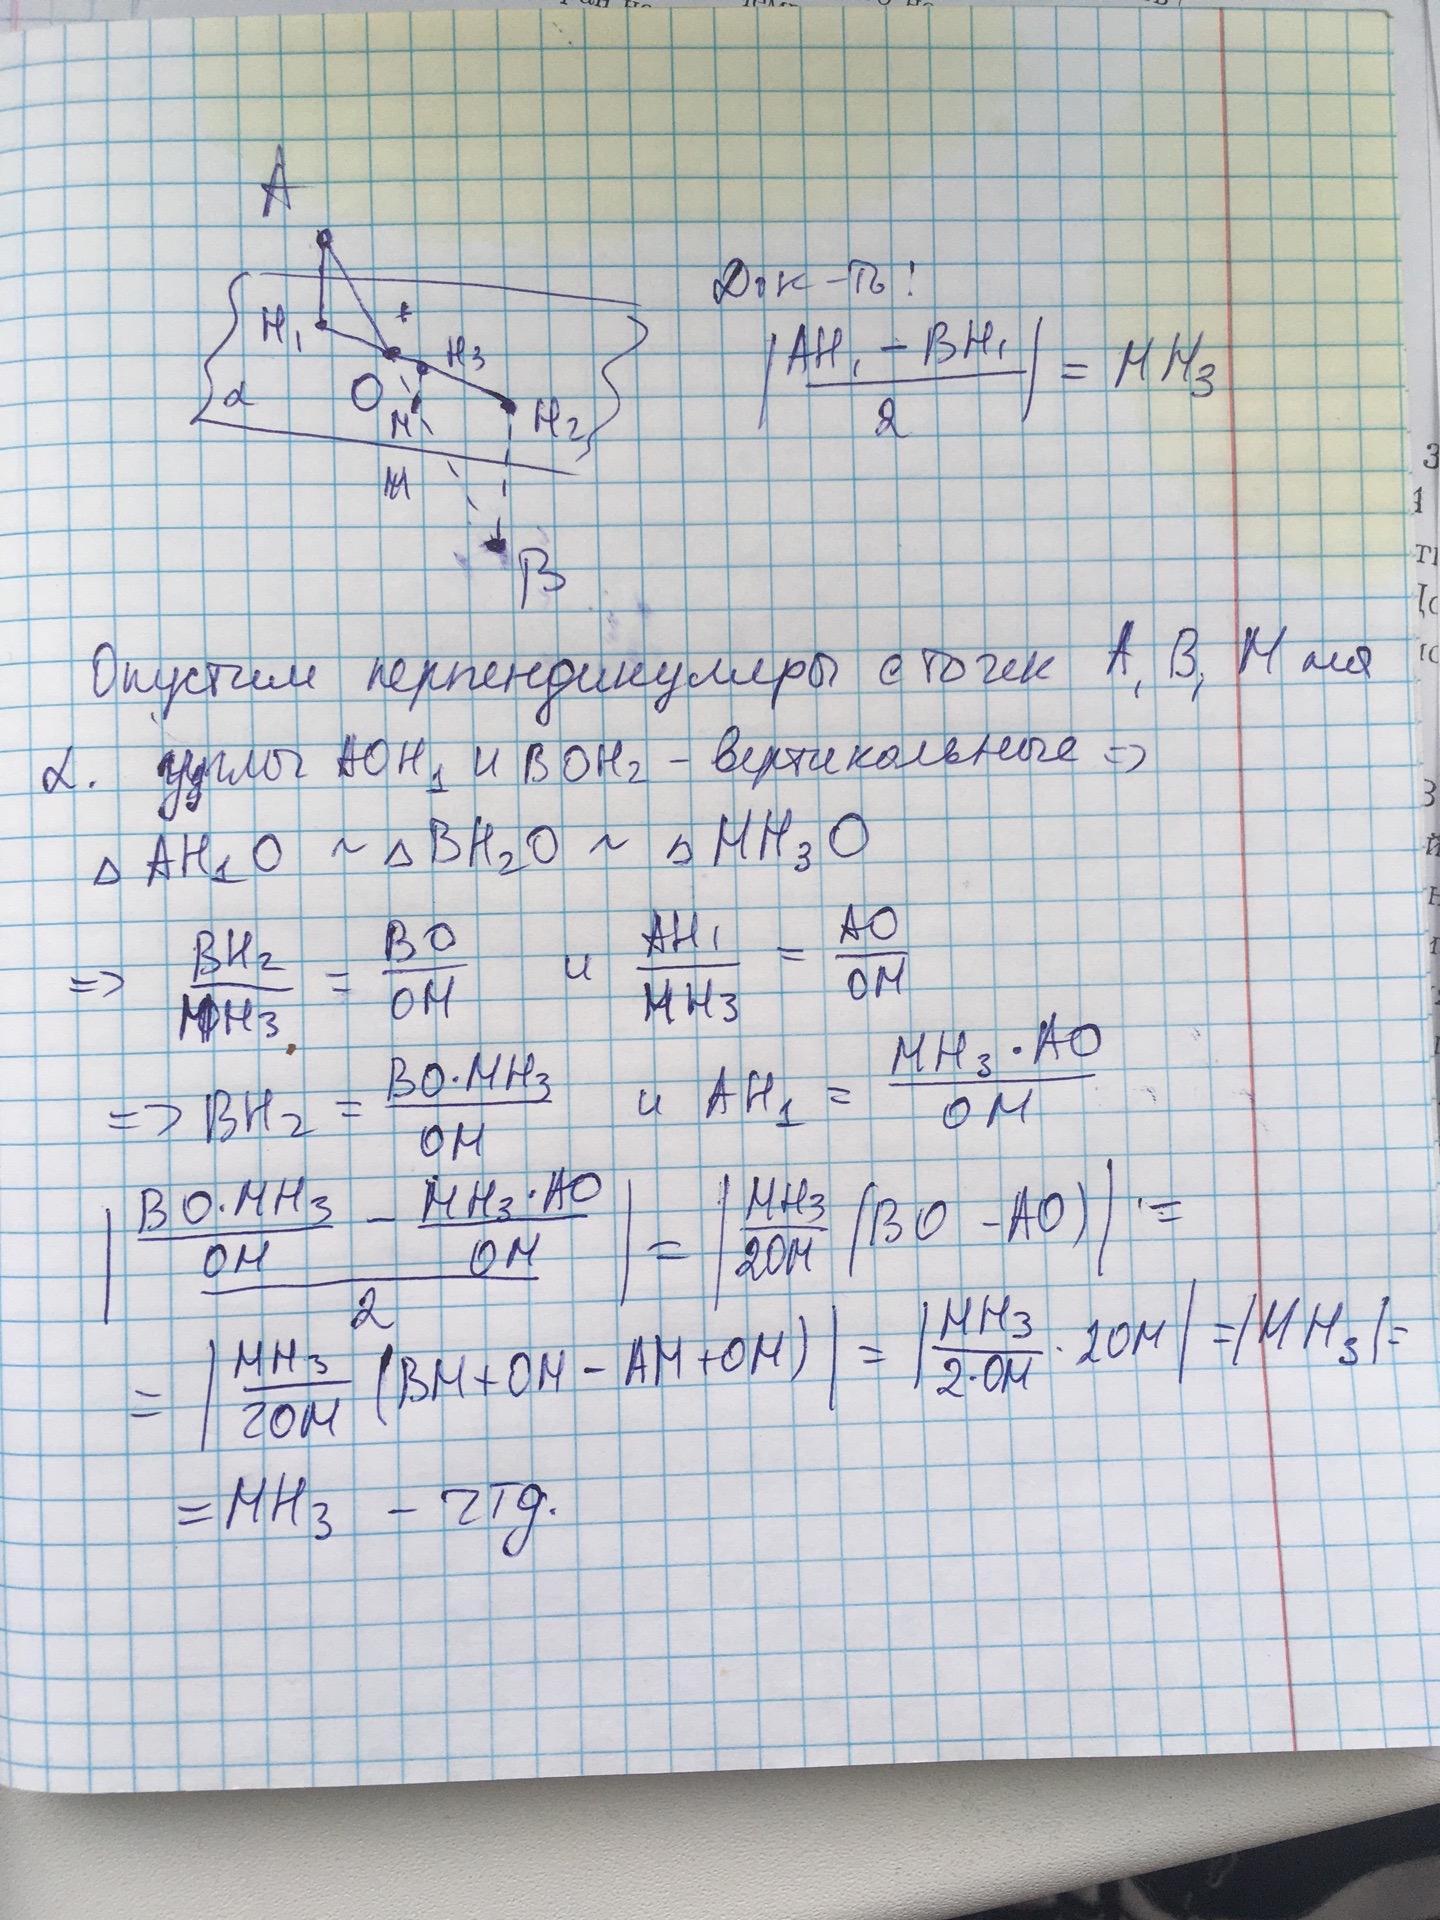 A
H₁
O
H₃
H₂
α
M
B
Док-ть!
|(AH₁ - BH₁)/2| = MH₃
Опустим перпендикуляры с точек A, B, M на
α. углы AOH₁ и BOH₂ - вертикальные =>
△ AH₁O ~ △ BH₂O ~ △ MH₃O
=> BH₂/MH₃ = BO/OM и AH₁/MH₃ = AO/OM
=> BH₂ = BO·MH₃/OM и AH₁ = MH₃·AO/OM
|(BO·MH₃/OM - MH₃·AO/OM)/2| = |MH₃/2OM (BO - AO)| =
= |MH₃/2OM (BM+OM - AM+OM)| = |MH₃/2·OM · 2OM| = |MH₃| =
= MH₃ - чтд.